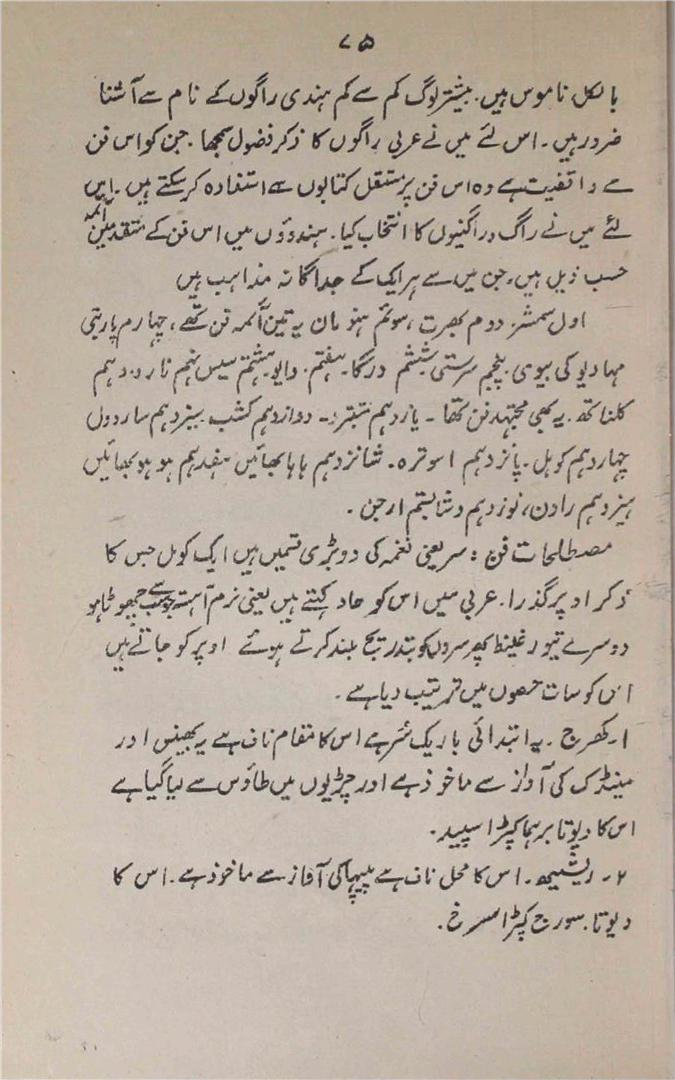 ۷۵
بالکل ناموس ہیں۔ بیشتر لوگ کم سے کم ہندی راگوں کے نام سے آشنا
ضرور ہیں۔ اس لئے میں نے عربی راگوں کا ذکر فضول سمجھا۔ جن کو اس فن
سے واقفیت ہے وہ اس فن پر مستقل کتابوں سے استفادہ کر سکتے ہیں۔ اس
لئے میں نے راگ وراگنیوں کا انتخاب کیا۔ ہندوؤں میں اس فن کے متقدمین آئمہ
حسب ذیل ہیں۔ جن میں سے ہر ایک کے جداگانہ مذاہب ہیں
اول سمشر۔ دوم بھرت، سوئم ہنومان یہ تین آئمہ فن تھے، چہارم پاربتی
مہادیو کی بیوی۔ پنجم سرستی ششم درگا۔ ہفتم۔ وایو ہشتم سیس نہم نارد۔ دہم
کلناتھ۔ یہ بھی مجتہد فن تھا۔ یازدہم تنبرو۔ دوازدہم کشب۔ سیزدہم ساردول
چہاردہم کوہل۔ پانزدہم اسوترہ۔ شانزدہم ہاہا بھائیں ہفدہم ہوہو بھائیں
ہیزدہم راون، نوزدہم دشا بستم ارجن۔
مصطلحات فن: سر یعنی نغمہ کی دو بڑی قسمیں ہیں ایک کومل جس کا
ذکر اوپر گذرا۔ عربی میں اس کو حاد کہتے ہیں یعنی نرم آہستہ جو سب سے چھوٹا ہو
دوسرے تیور غلیظ پھر سروں کو بتدریج بلند کرتے ہوئے اوپر کو جاتے ہیں
اس کو سات حصوں میں ترتیب دیا ہے۔
۱۔ کھرج۔ یہ ابتدائی باریک سر ہے اس کا مقام ناف ہے یہ بھینس اور
مینڈک کی آواز سے ماخوذ ہے اور چڑیوں میں طاؤس سے لیا گیا ہے
اس کا دیوتا برہما کپڑا سپید۔
۲۔ ریشبھ۔ اس کا محل ناف ہے پپیہا کی آفاز سے ماخوذ ہے۔ اس کا
دیوتا۔ سورج کپڑا سرخ۔